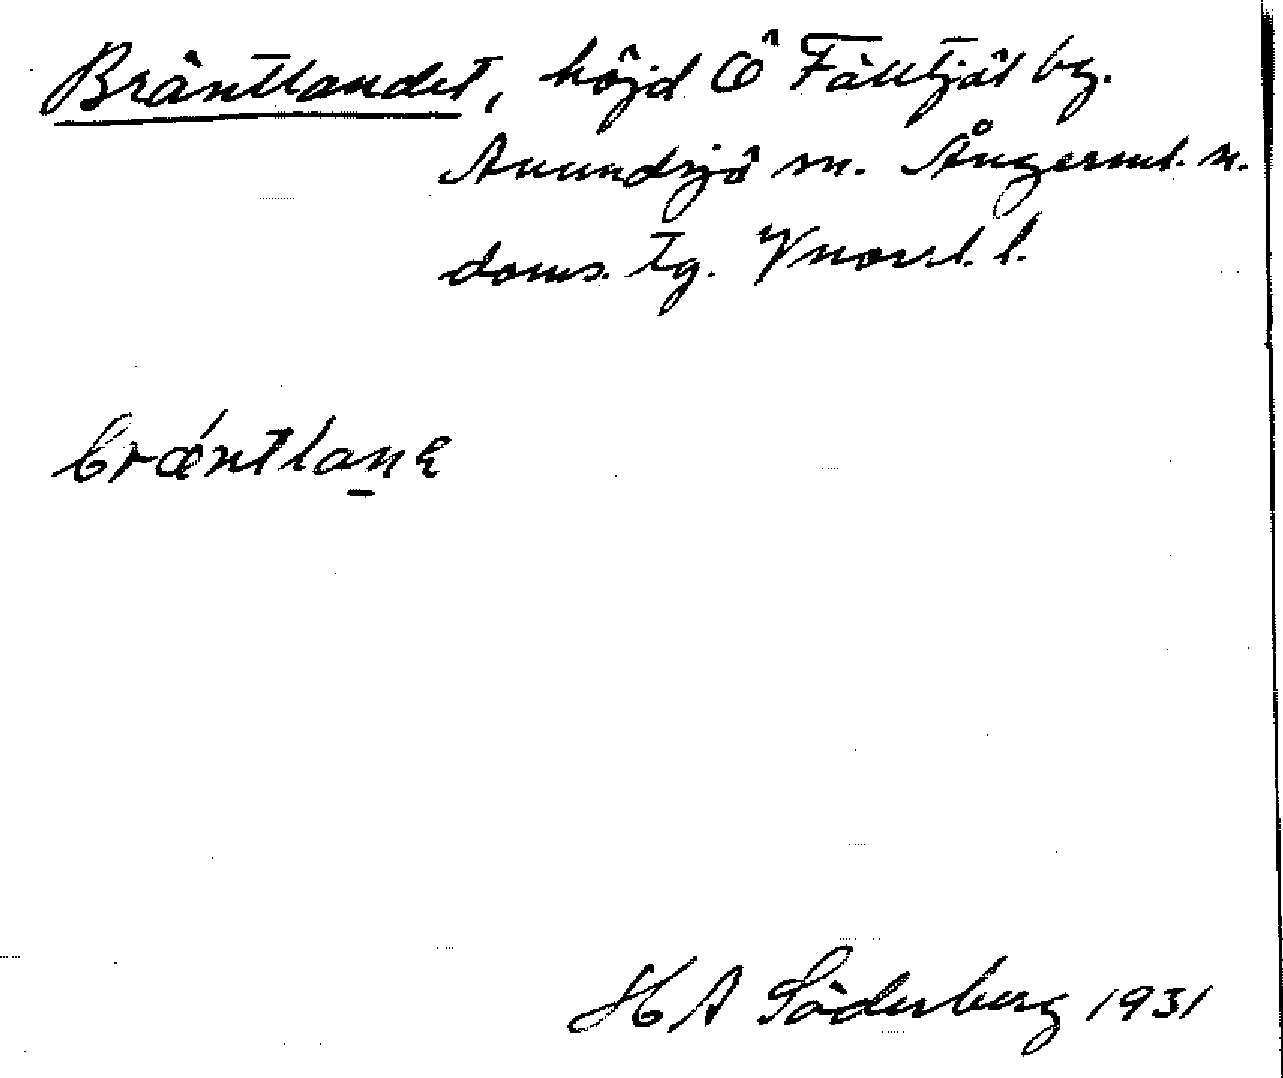 Bräntlandet, höjd Ö Fälltjäl by.
Anundsjö sn. Ångerml. n.
doms. tg. Vnorrl. l.
bræ´ntlanɛ
H A Söderberg 1931